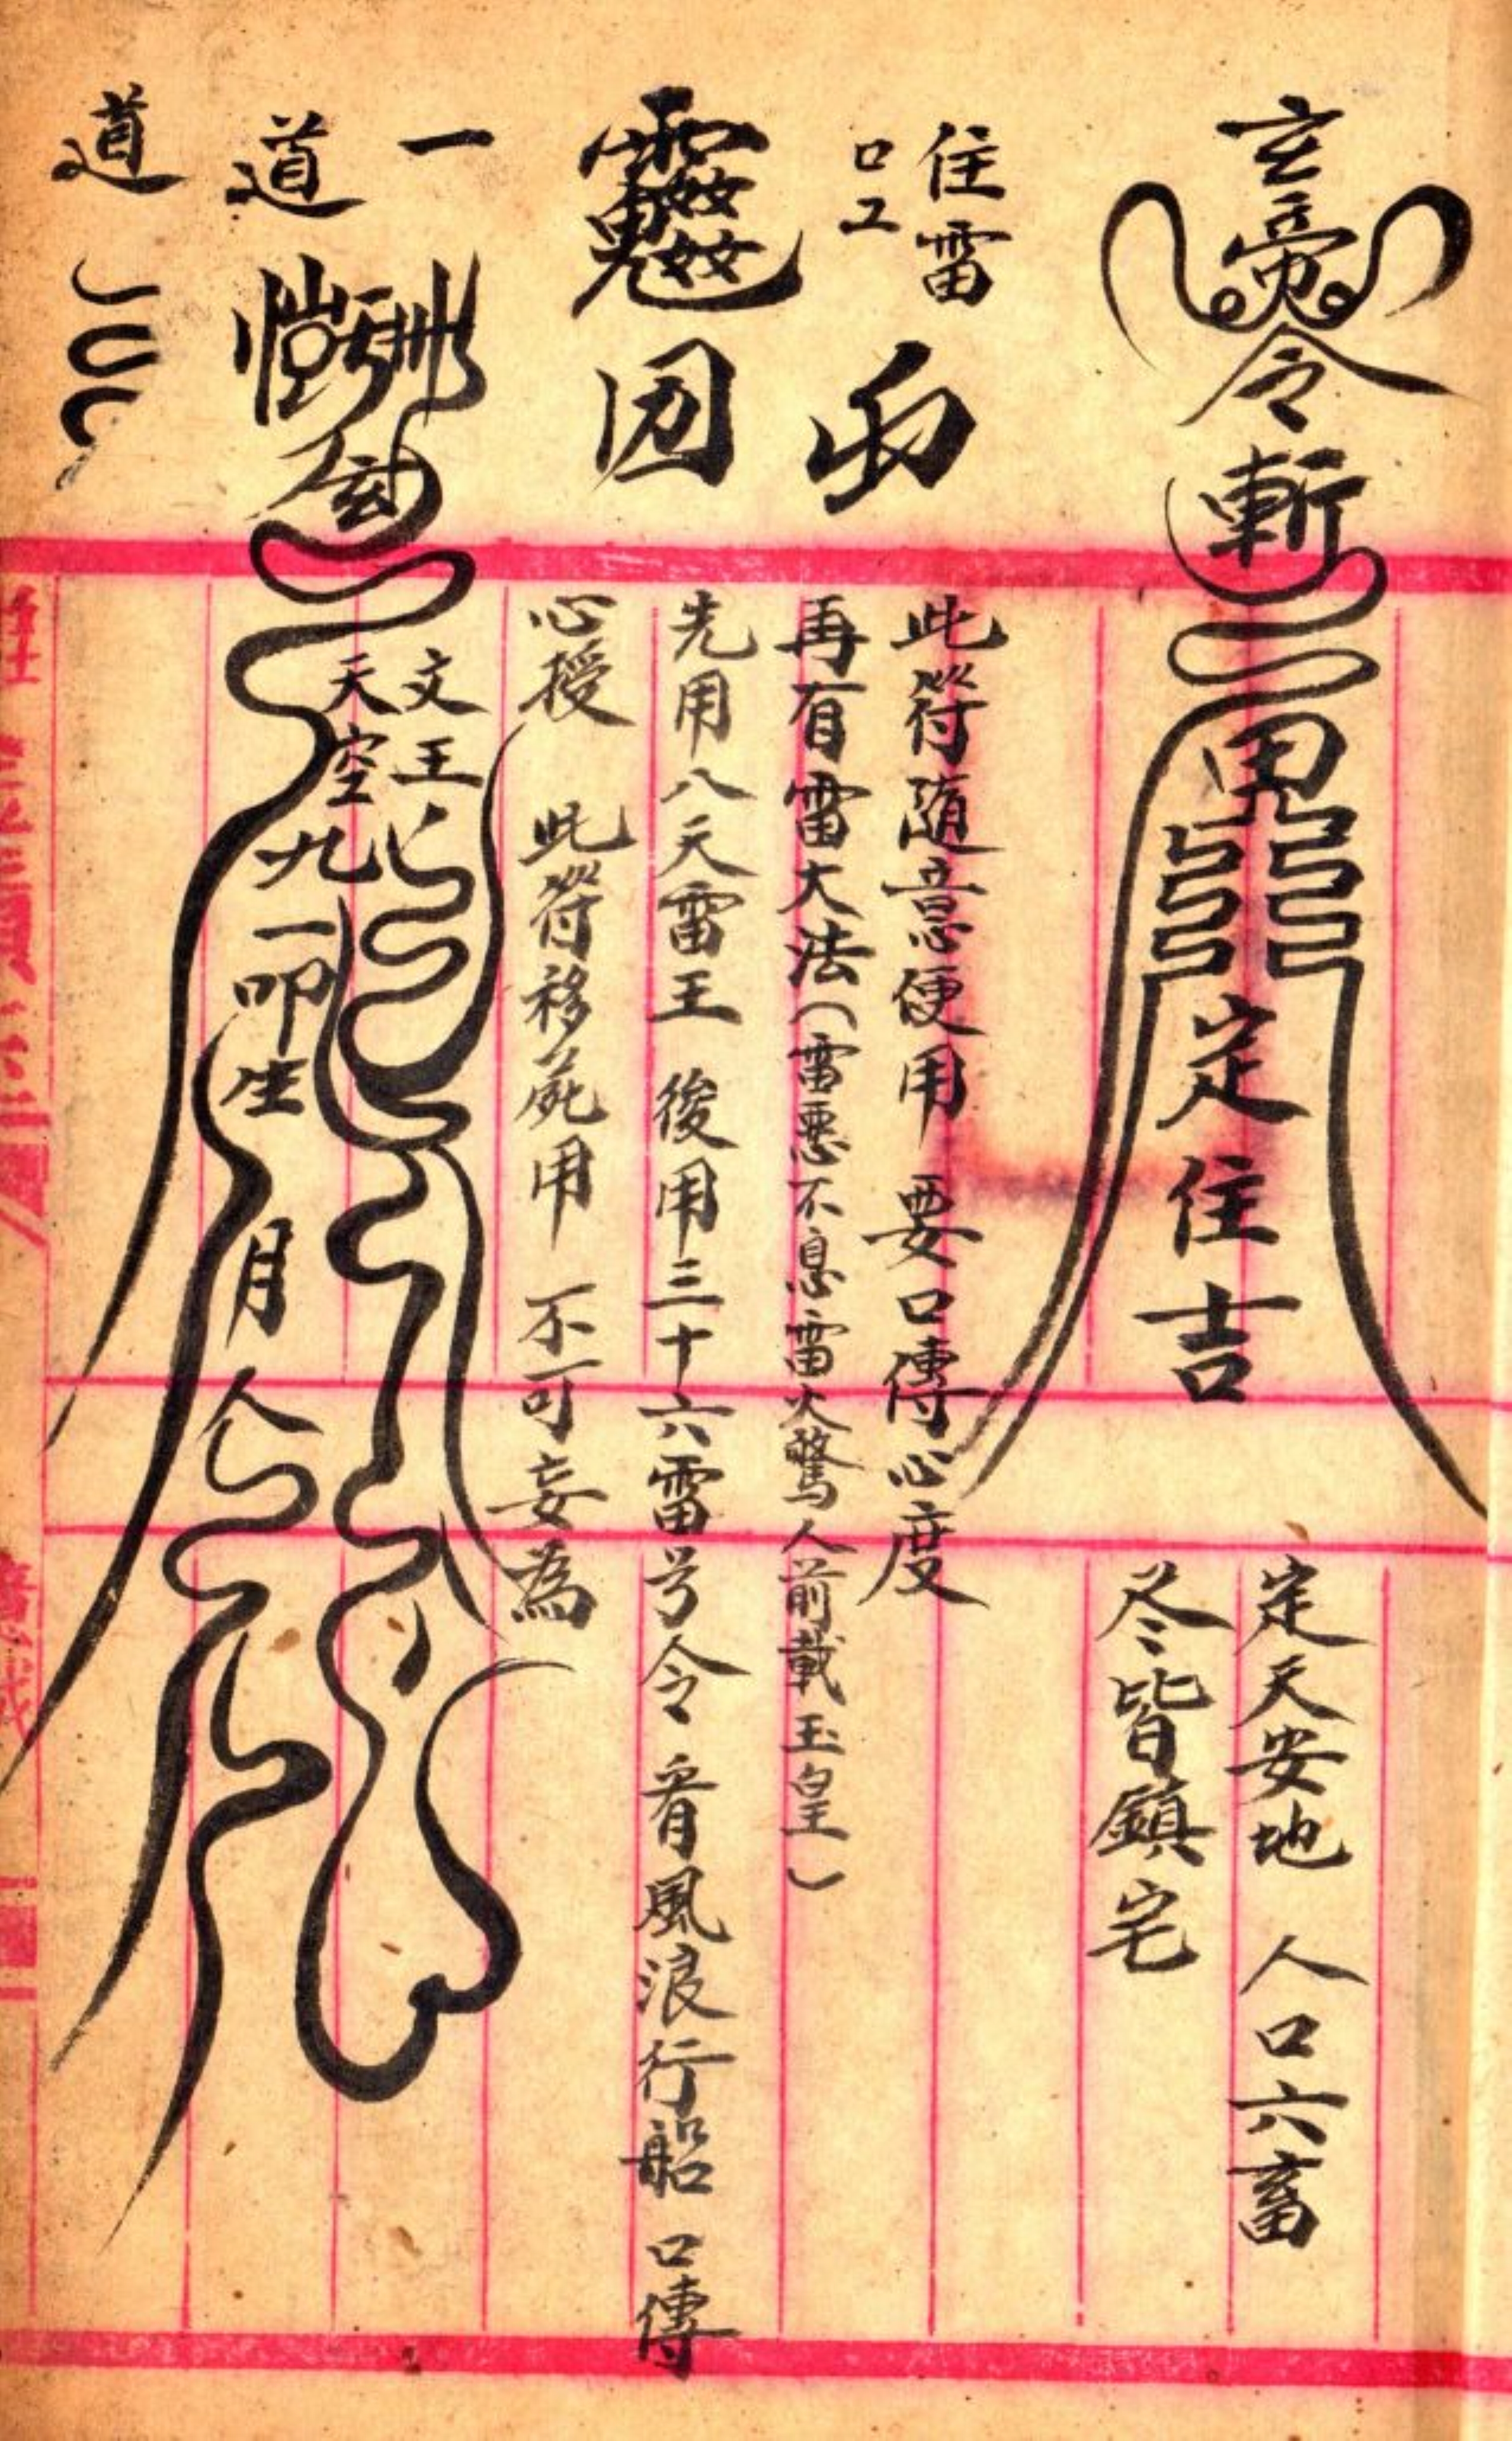 玄
令
定住吉
定天安地 人口六畜
冬皆鎮宅
住雷
口工
此符隨意便用 要口傳心度
再有雷大法(雷惡不息雷火驚人前載玉皇)
先用八天雷王 後用三十六雷号令 看風浪行船 口傳
心授 此符移屍用 不可妄為
一
道
文王
天空
九
一叩生
月
道